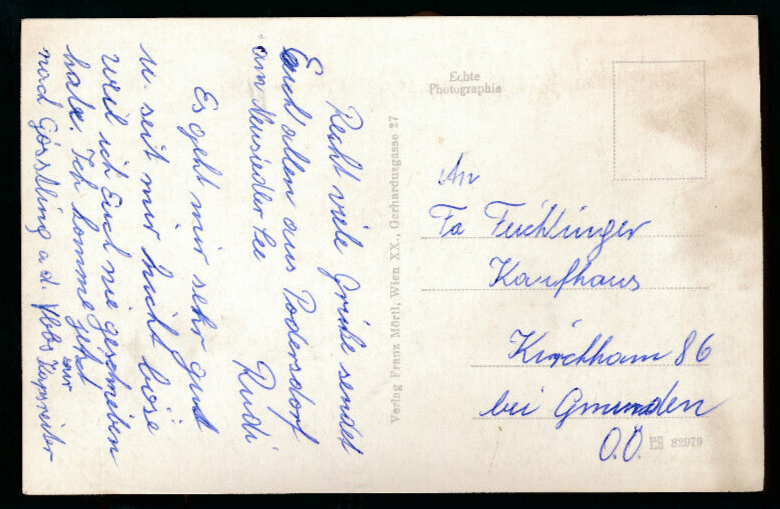 Recht viele Grüße sendet
Euch allen aus Podersdorf
am Neusiedler See Rudi
Es geht mir sehr gut
u. seit mir nicht böse
weil ich Euch nie geschrieben
habe. Ich komme jetzt
nach Göstling a. d. Ybbs zur
Verlag Franz Mörtl, Wien XX., Gerhardusgasse 27
Echte
Photographie
An
Fa Feichtinger
Kaufhaus
Kirchham 86
bei Gmunden
O.Ö.
82979